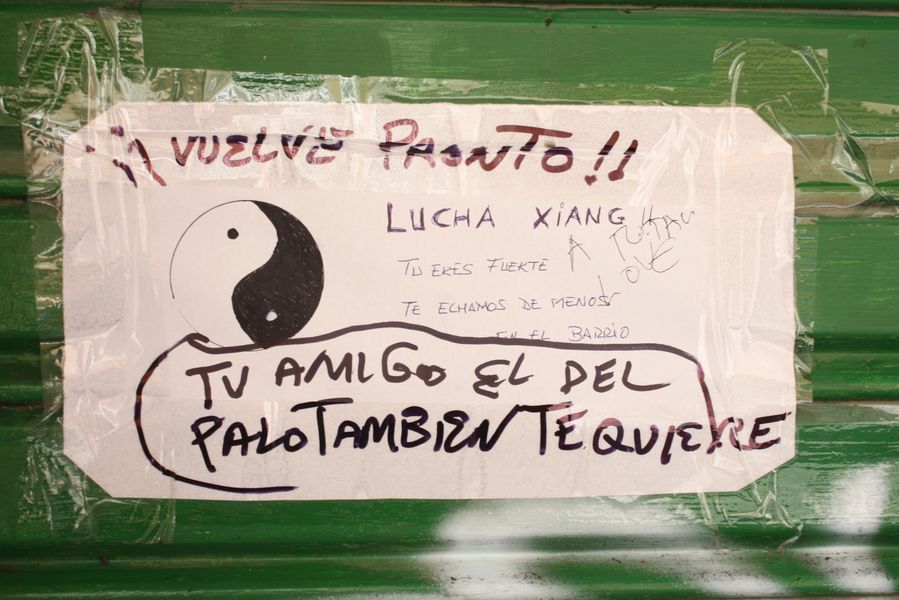 ¡¡ VUELVE PRONTO!!
LUCHA XIANG
TU ERES FUERTE
A
LOVE
TE ECHAMOS DE MENOS
EN EL BARRIO
TU AMIGO EL DEL
PALO TAMBIEN TE QUIERE